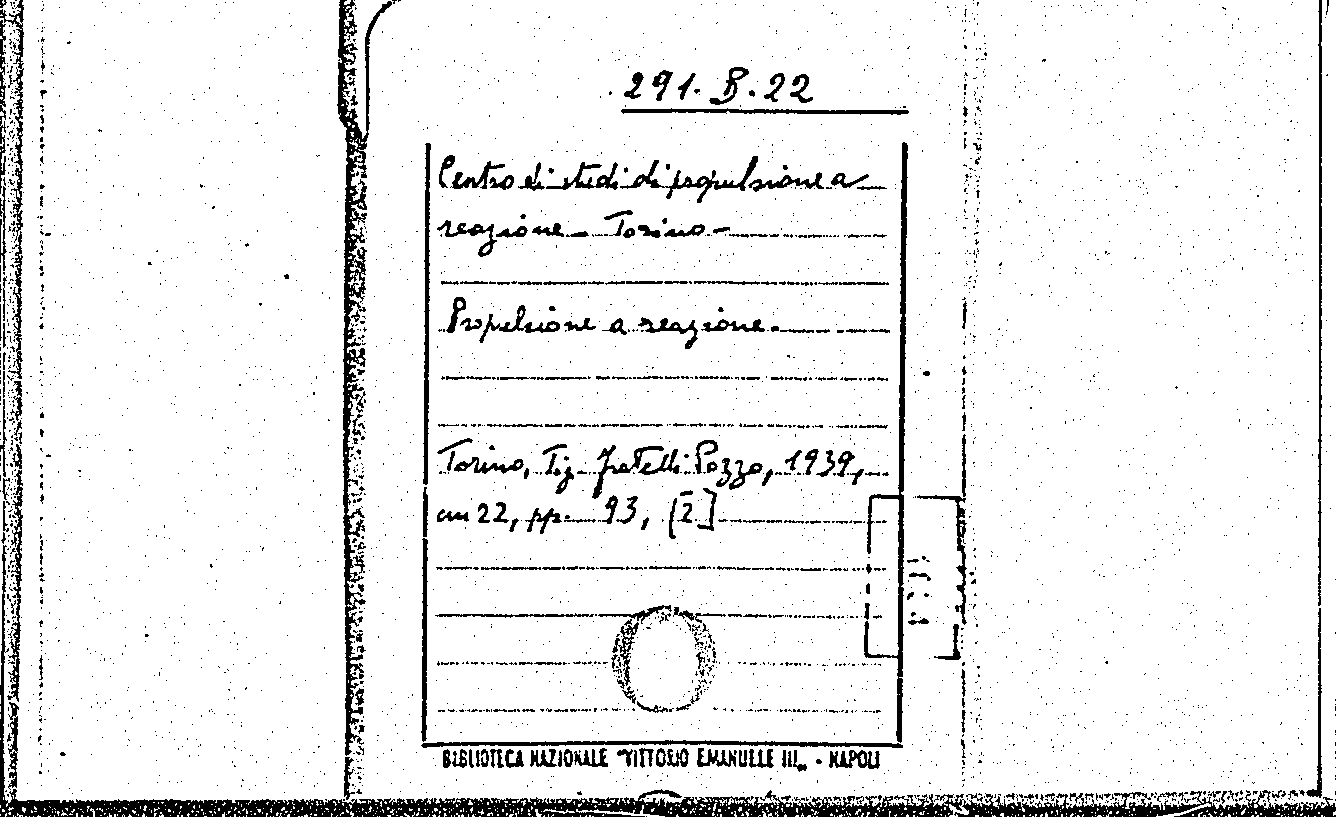 291. B. 22
Centro di studi di propulsione a
reazione - Torino -
Propulsione a reazione.
Torino, Tip. fratelli Pozzo, 1939,
cm 22, pp. 93, [2]
BIBLIOTECA NAZIONALE "VITTORIO EMANUELE III„ - NAPOLI